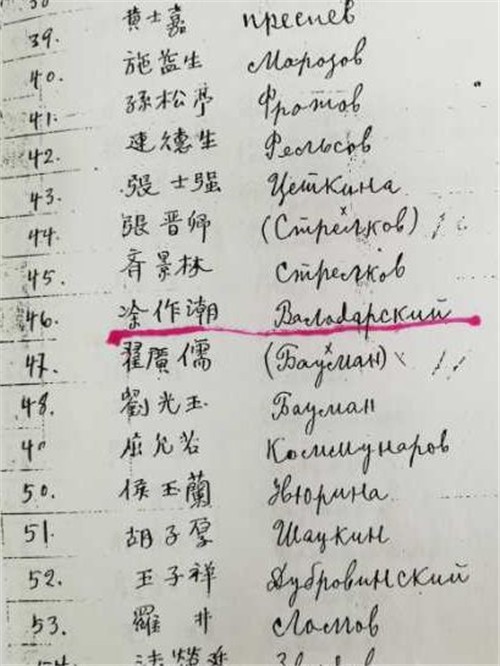 39. 黄士嘉 преснев
40. 施益生 Марозов
41. 孫松亭 Фротов
42. 連德生 Рельсов
43. 張士强 Цеткина
44. 張晋卿 (Стрелков)
45. 齐景林 Стрелков
46. 涂作潮 Валодарский
47. 翟廣儒 (Бауман)
48. 劉光玉 Бауман
49 屈允若 Коммунаров
50. 侯玉蘭 Звюрина
51. 胡子厚 Шацкин
52. 王子祥 Дубровинский
53. 羅井 Ломов
54.